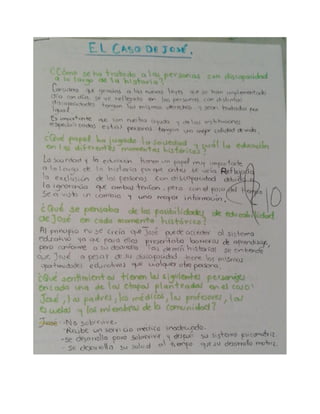 EL CASO DE JOSÉ.
¿Cómo se ha tratado a las personas con discapacidad
a lo largo de la historia?
Considero que gracias a las nuevas leyes que se han implementado
día con día, se ve reflejado en las personas con distintas
discapacidades tengan los mismos derechos y sean tratados por
igual.
Es importante que con nuestra ayuda y de las instituciones
especializadas estas personas tengan una mejor calidad de vida.
¿Qué papel ha jugado la sociedad y cuál la educación
en los diferentes momentos históricos?
La sociedad y la educación tienen un papel muy importante
a lo largo de la historia porque antes se veía Reflejada
la exclusión de las personas con discapacidad debido a
la ignorancia que ambas tenían, pero con el paso del tiempo
se a visto un cambio y una mayor información.
10
¿Qué se pensaba de las posibilidades de educabilidad
de José en cada momento histórico?
Al principio no se creía que José puede acceder al sistema
educativo ya que para ellos presentaba barreras de aprendizaje,
pero conforme a su desarrollo las demás historias se entiende
que José a pesar de su discapacidad tiene las mismas
oportunidades educativas que cualquier otra persona.
¿Qué sentimientos tienen los siguientes personajes
en cada una de las etapas planteadas en el caso:
José, los padres, los médicos, los profesores, las
escuelas y los miembros de la comunidad?
José: -No sobrevive.
-Recibe un servicio médico inadecuado.
-se desarrolla para sobrevivir y después su sistema psicomotriz.
- Se desarrolla su salud al tiempo que su desarrollo motriz.